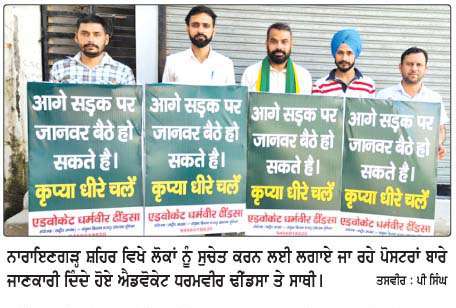 आगे सड़क पर
जानवर बैठे हो
सकते है।
कृप्या धीरे चलें
एडवोकेट धर्मवीर ढींडसा
आगे सड़क पर
जानवर बैठे हो
सकते है।
कृप्या धीरे चलें
एडवोकेट धर्मवीर ढींडसा
आगे सड़क पर
जानवर बैठे हो
सकते है।
कृप्या धीरे चलें
एडवोकेट धर्मवीर ढींडसा
आगे सड़क पर
जानवर बैठे हो
सकते है।
कृप्या धीरे चलें
एडवोकेट धर्मवीर ढींडसा
ਨਾਰਾਇਣਗੜ੍ਹ ਸ਼ਹਿਰ ਵਿਖੇ ਲੋਕਾਂ ਨੂੰ ਸੁਚੇਤ ਕਰਨ ਲਈ ਲਗਾਏ ਜਾ ਰਹੇ ਪੋਸਟਰਾਂ ਬਾਰੇ
ਜਾਣਕਾਰੀ ਦਿੰਦੇ ਹੋਏ ਐਡਵੋਕੇਟ ਧਰਮਵੀਰ ਢੀਂਡਸਾ ਤੇ ਸਾਥੀ। ਤਸਵੀਰ : ਪੀ ਸਿੰਘ